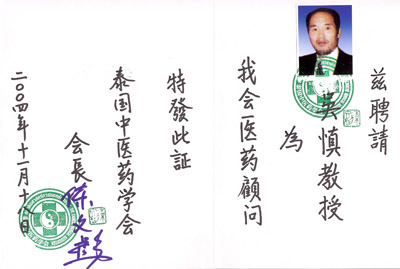 兹聘請
吴慎教授
為
我会医药顾问
特發此証
泰国中医药学会
会長
二〇〇四年十一月十八日